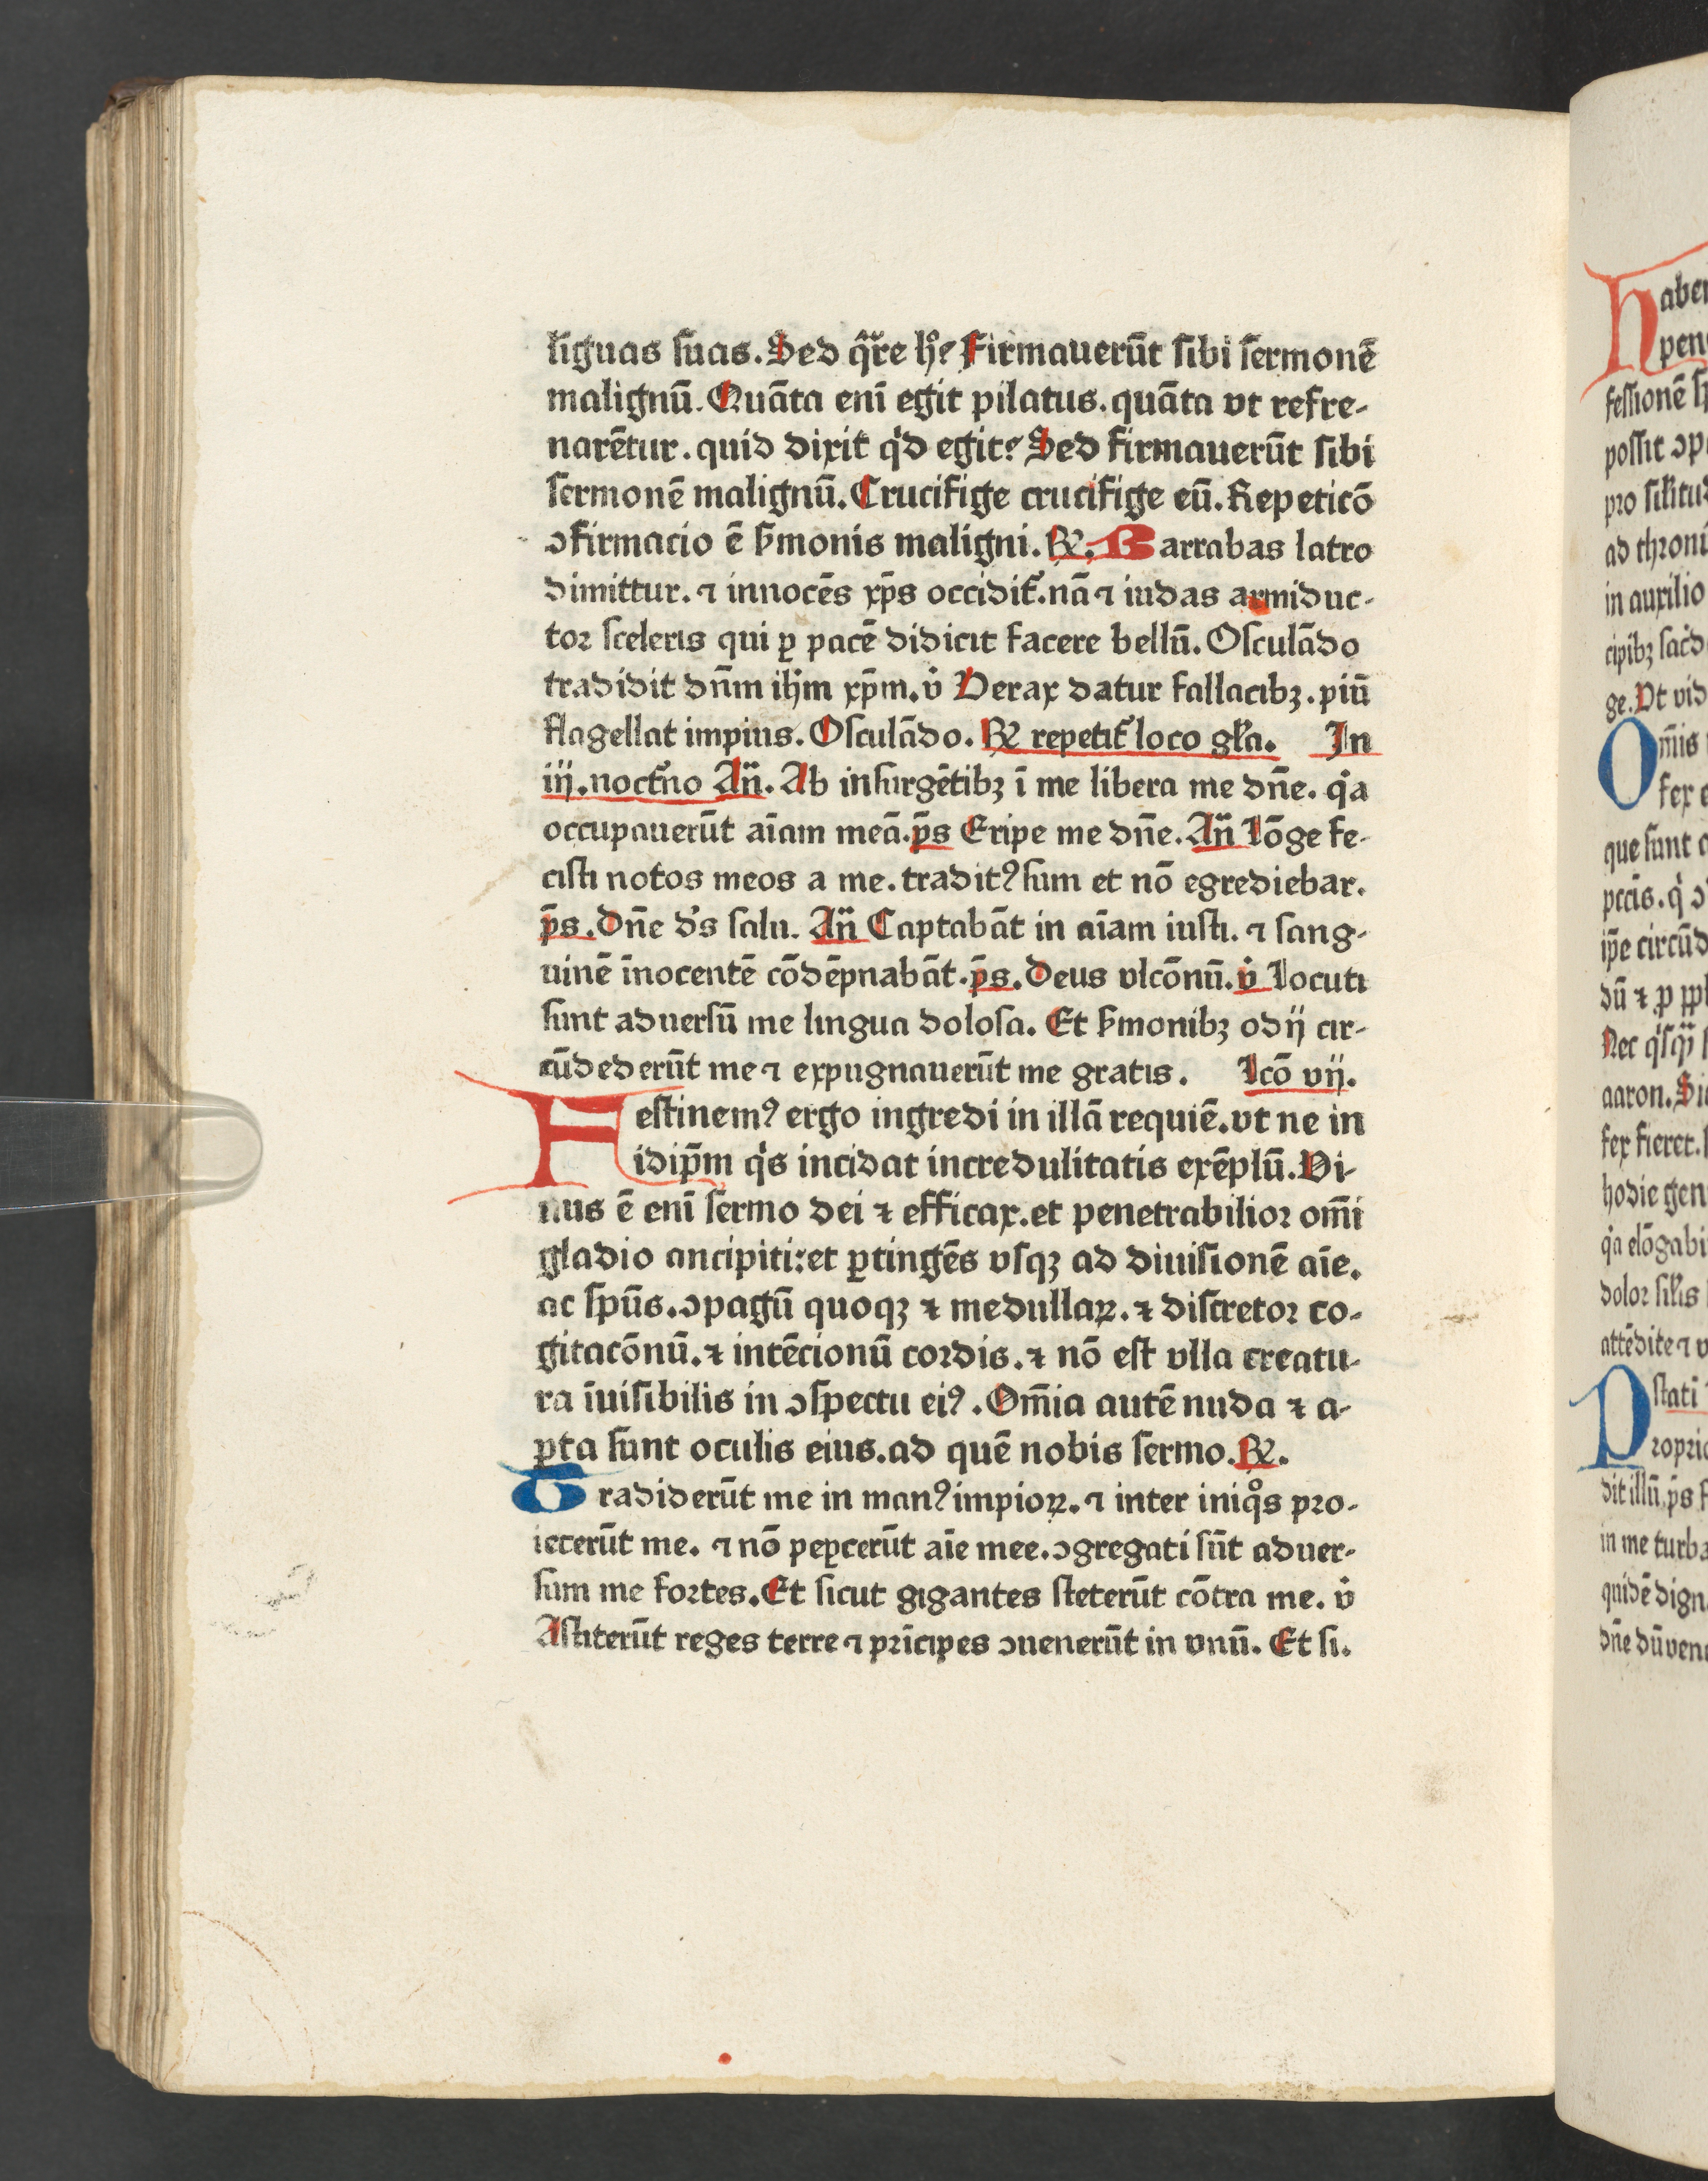 lĩguas ſuas. Sed q̃re hͦ? Firmauerũt ſibi ſermonẽ
malignũ. Quãta enĩ egit pilatus. quãta vt refre-
narẽtur. quid dixit qͥd egit? Sed firmauerũt ſibi
ſermonẽ malignũ. Crucifige crucifige eũ. Repeticõ
ↄfirmacio ẽ ẜmonis maligni. ℞. Barrabas latro
dimittur. ⁊ innocẽs xp̃s occidit᷑. nã ⁊ iudas armiduc-
toꝛ ſceleris qui ꝑ pacẽ didicit facere bellũ. Oſculãdo
tradidit dñm ihm̃ xp̃m. v̊ Verax datur fallacibꝫ. piũ
flagellat impius. Oſculãdo. ℞ repetit᷑ loco gl̃a. In
iij. noct᷑no An̈. Ab inſurgẽtibꝫ ĩ me libera me dñe. qͥa
occupauerũt aĩam meã. p̃s Eripe me dñe. An̈ Lõge fe-
ciſti notos meos a me. traditꝰ ſum et nõ egrediebar.
p̃s. Dñe d̾s ſalu. An̈ Captabãt in aĩam iuſti. ⁊ ſang-
uinẽ ĩnocentẽ cõdẽpnabãt. p̃s. Deus vlcõnũ. v̊ Locuti
ſunt aduerſũ me lingua doloſa. Et ẜmonibꝫ odij cir-
cũdederũt me ⁊ expugnauerũt me gratis. Lcõ vij.
Feſtinemꝰ ergo ingredi in illã requiẽ. vt ne in
idip̃m qͥs incidat incredulitatis exẽplũ. Vi-
uus ẽ enĩ ſermo dei ⁊ efficax. et penetrabilioꝛ om̃i
gladio ancipiti: et ꝑtingẽs vſqꝫ ad diuiſionẽ aĩe.
ac ſpũs. ↄpagũ quoqꝫ ⁊ medullaꝝ. ⁊ diſcretoꝛ co-
gitacõnũ. ⁊ intẽcionũ coꝛdis. ⁊ nõ eſt vlla creatu-
ra ĩuiſibilis in ↄſpectu eiꝰ. Om̃ia autẽ nuda ⁊ a-
ꝑta ſunt oculis eius. ad quẽ nobis ſermo. ℞.
Tradiderũt me in manꝰ impioꝝ. ⁊ inter iniqͦs pꝛo-
iecerũt me. ⁊ nõ peꝑcerũt aĩe mee. ↄgregati ſũt aduer-
ſum me foꝛtes. Et ſicut gigantes ſteterũt cõtra me. v̊
Aſtiterũt reges terre ⁊ pꝛĩcipes ↄuenerũt in vnũ. Et ſi.
feſſionẽ
poſſit
pꝛo
ad
in auxilio
ge. Vt
Om̃is
fex
que ſunt
pccĩs. qͥ
ip̃e
dũ ⁊ ꝑ
Nec
aaron.
fex fieret.
hodie
qͥa
doloꝛ
attẽdite ⁊
dit illũ. p̃s
in me
quidẽ
dñe dũ